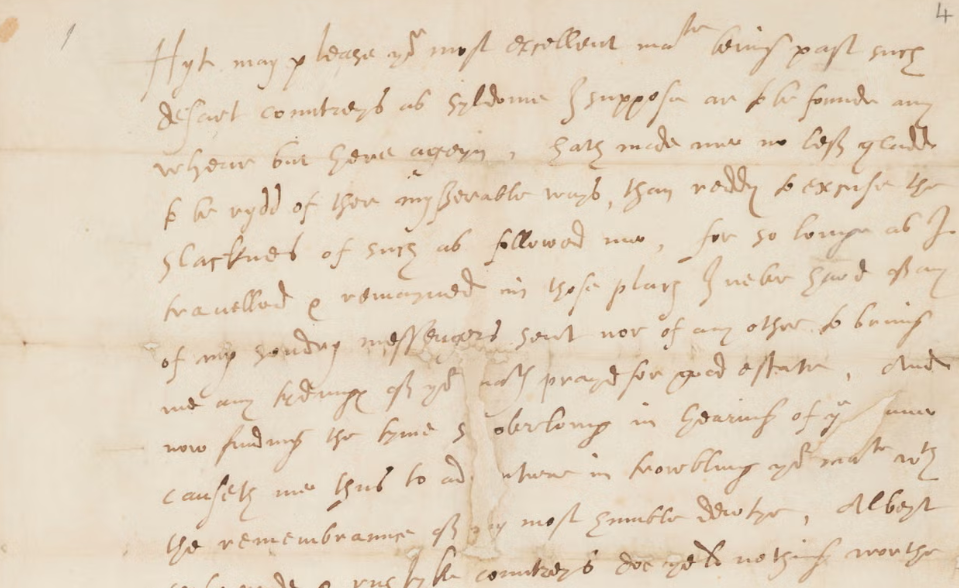 4
Hyt may please yr most excellent matie being past such
desart countreys as syldome I suppose ar to be founde any
whear but here ageyn, hath made me no less gladde
to be rydd of ther mysserable ways, than reddy to excuse the
slacknes of such as followed me, for so longe as I
travelled & remayned in those placis I never hard of any
of my sondry messengers sent nor of any other to bring
me any tydingis of yr prayd for good estate, And
now finding the tyme overlong in hearing of yr
causeth me thus to in trowbling yr matie with
the remembrance of my most humble dewtye, Albeyt
countreys doe yeld nothing worthe